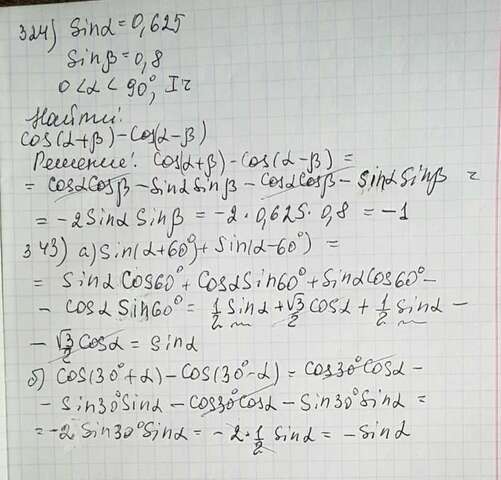 324) Sinα = 0,625
Sinβ = 0,8
0 < α < 90°, I ч
Найти:
cos(α+β) - cos(α-β)
Решение: cos(α+β) - cos(α-β) =
= cosαcosβ - Sinα Sinβ - cosαcosβ - Sinα Sinβ =
= -2Sinα Sinβ = -2·0,625·0,8 = -1
343) а) Sin(α+60°) + Sin(α-60°) =
= Sinα Cos60° + CosαSin60° + SinαCos60° -
- Cosα Sin60° = 1/2 Sinα + √3/2 Cosα + 1/2 Sinα -
- √3/2 Cosα = Sinα
б) Cos(30°+α) - Cos(30°-α) = Cos30°Cosα -
- Sin30°Sinα - Cos30°Cosα - Sin30°Sinα =
= -2 Sin30°Sinα = -2·1/2 Sinα = -Sinα